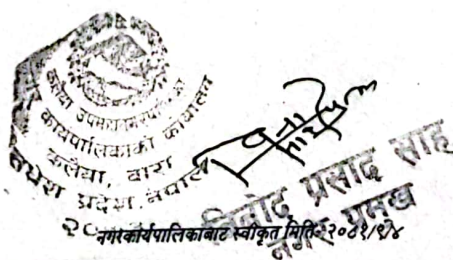 कलैया उपमहानगरपालिका
कार्यपालिकाको कार्यालय
कलैया, बारा
मधेश प्रदेश, नेपाल
विनोद प्रसाद साह
नगर प्रमुख
नगरकार्यपालिकाबाट स्वीकृत मितिः२०८१/९/४